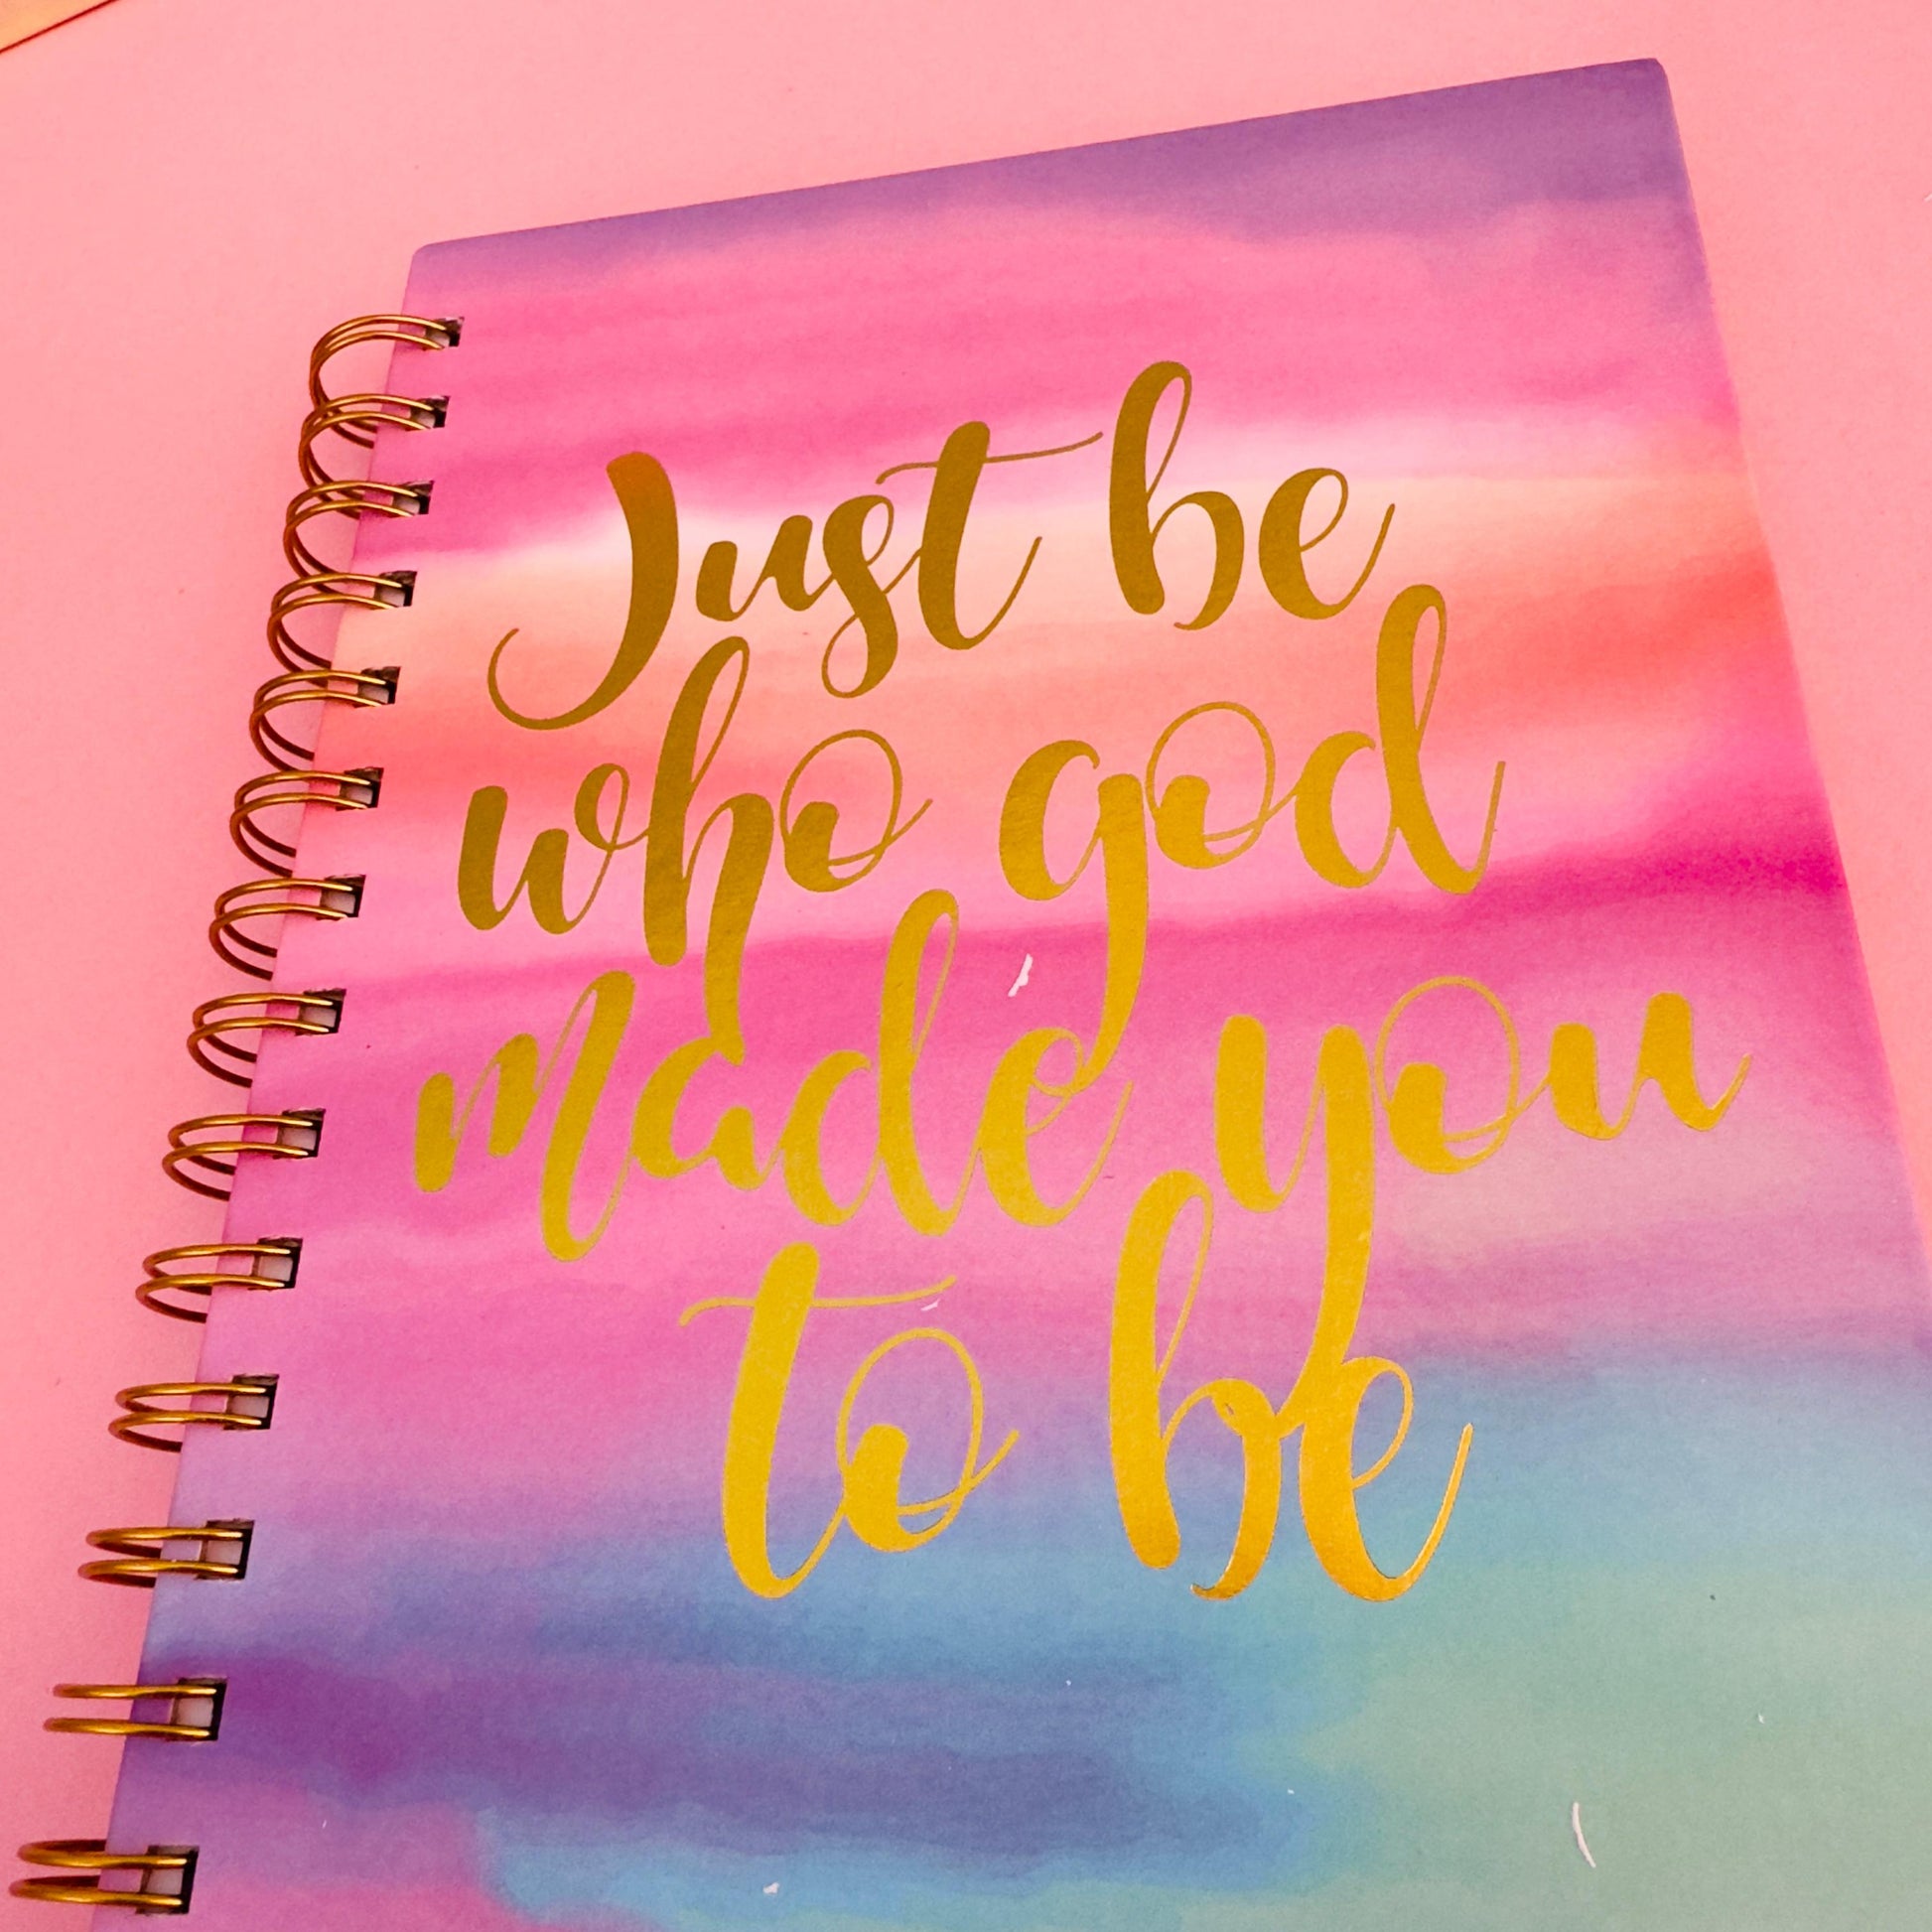 Just be
who god
made you
to be